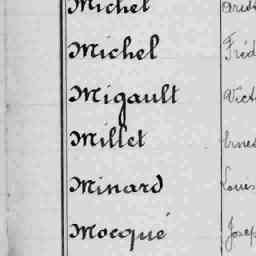 Michel
Michel Fréd
Migault Vict
Millet Ernes
Minard Louis
Mocqué Josep